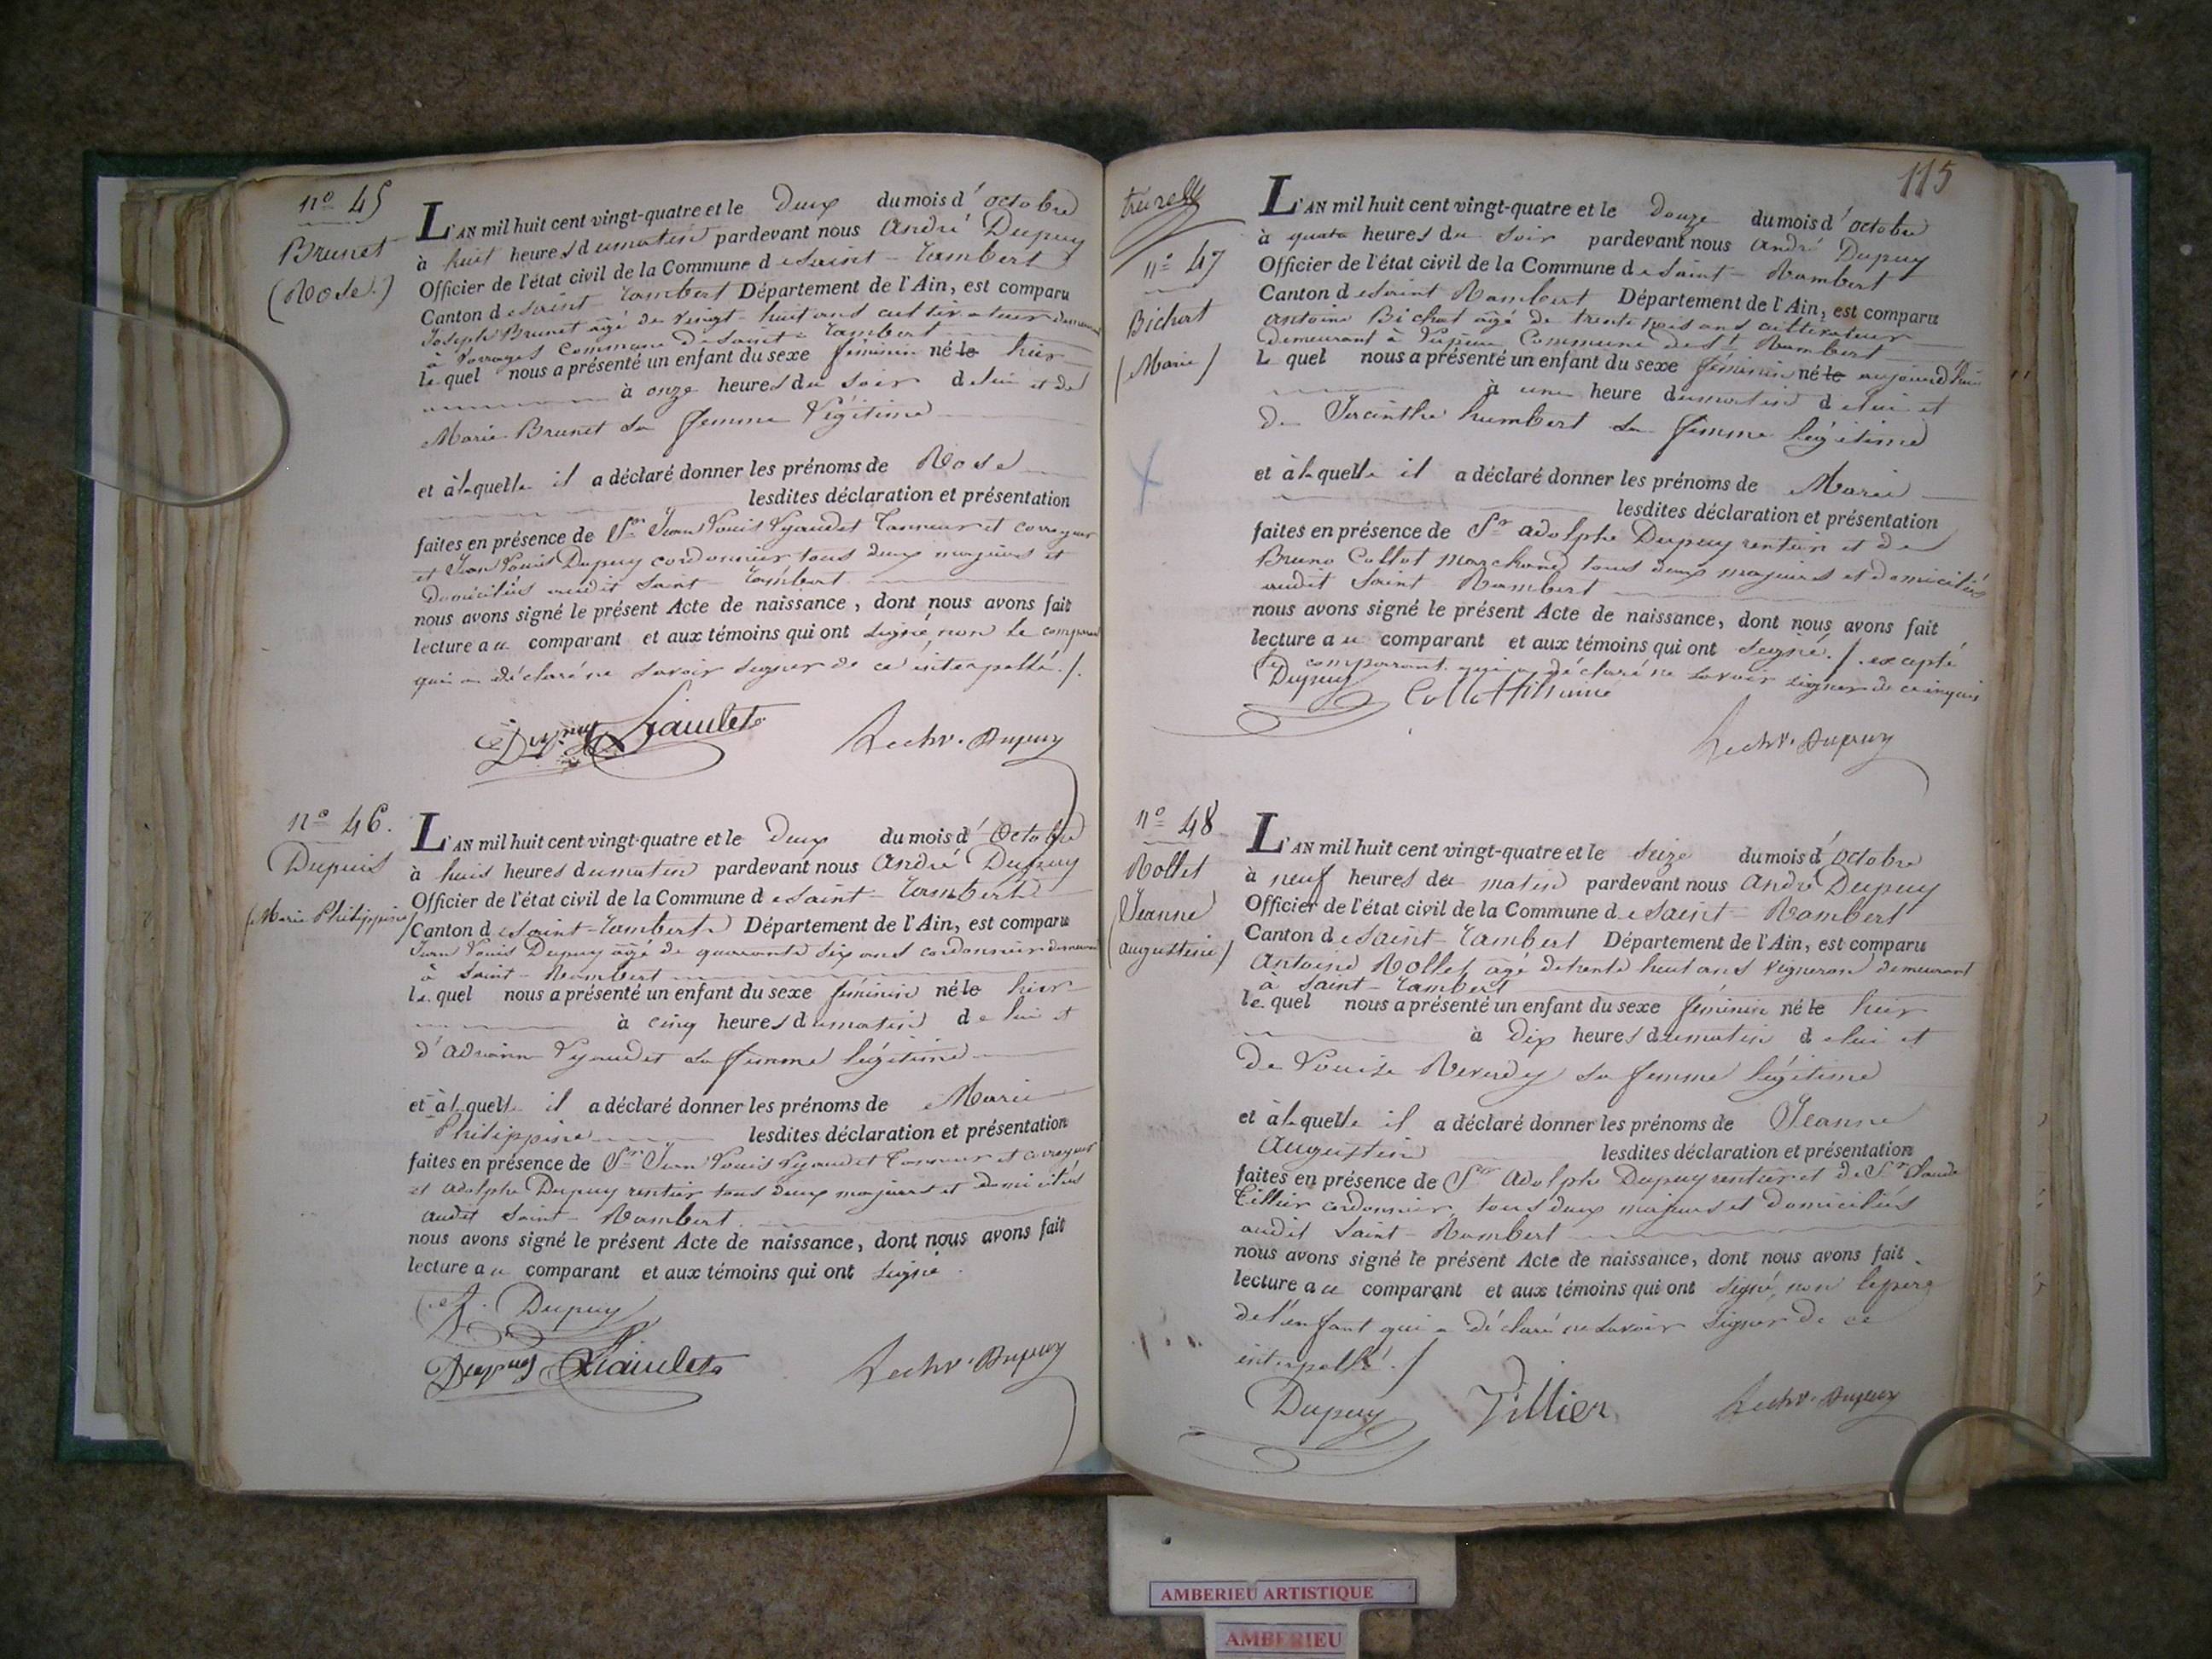 n° 45
Brunet
(Rose.)
L'AN mil huit cent vingt-quatre et le deux du mois d'octobre
à huit heures du matin pardevant nous André Dupuy
Officier de l'état civil de la Commune de Saint-Rambert
Canton de Saint Rambert Département de l'Ain, est comparu
Joseph Brunet âgé de vingt-huit ans cultivateur demeurant
à Vorages Commune de Saint-Rambert
lequel nous a présenté un enfant du sexe féminin né le hier
à onze heures du soir de lui et de
Marie Brunet sa femme légitime
et à laquelle il a déclaré donner les prénoms de Rose
lesdites déclaration et présentation
faites en présence de Sr Jean Louis Lyaudet Tanneur et corroyeur
et Jean Louis Dupuy cordonnier tous deux majeurs et
domiciliés audit Saint-Rambert
nous avons signé le présent Acte de naissance, dont nous avons fait
lecture au comparant et aux témoins qui ont signé, non le comparant
qui a déclaré ne savoir signer de ce interpellé./.
Dupuy Liaudet
Dupuy
n° 46.
Dupuis
(Marie Philippine)
L'AN mil huit cent vingt-quatre et le deux du mois d'Octobre
à huit heures du matin pardevant nous André Dupuy
Officier de l'état civil de la Commune de Saint-Rambert
Canton de Saint-Rambert Département de l'Ain, est comparu
Jean Louis Dupuy âgé de quarante six ans cordonnier demeurant
à Saint-Rambert
lequel nous a présenté un enfant du sexe féminin né le hier
à cinq heures du matin de lui et
d'Adrianne Lyaudet sa femme légitime
et à laquelle il a déclaré donner les prénoms de Marie
Philippine lesdites déclaration et présentation
faites en présence de Sr Jean Louis Lyaudet Tanneur et corroyeur
et Adolphe Dupuy rentier tous deux majeurs et domiciliés
audit Saint-Rambert.
nous avons signé le présent Acte de naissance, dont nous avons fait
lecture au comparant et aux témoins qui ont signé.
A. Dupuy
Dupuy Liaudet
Dupuy
115
n° 47
Bichat
(Marie)
L'AN mil huit cent vingt-quatre et le douze du mois d'octobre
à quatre heures du soir pardevant nous André Dupuy
Officier de l'état civil de la Commune de Saint-Rambert
Canton de Saint Rambert Département de l'Ain, est comparu
Antoine Bichat âgé de trente trois ans cultivateur
demeurant à Commune de St Rambert
Lequel nous a présenté un enfant du sexe féminin né le aujourd'hui
à une heure du matin de lui et
de Jacinthe humbert sa femme légitime
et à laquelle il a déclaré donner les prénoms de Marie
lesdites déclaration et présentation
faites en présence de Sr adolphe Dupuy rentier et de
Bruno Collot marchand tous deux majeurs et domiciliés
audit Saint Rambert
nous avons signé le présent Acte de naissance, dont nous avons fait
lecture au comparant et aux témoins qui ont signé./. excepté
le comparant qui a déclaré ne savoir signer de ce enquis
Dupuy Collot
Dupuy
n° 48
Rollet
(Jeanne
augustine)
L'AN mil huit cent vingt-quatre et le seize du mois d'octobre
à neuf heures du matin pardevant nous André Dupuy
Officier de l'état civil de la Commune de Saint-Rambert
Canton de Saint-Rambert Département de l'Ain, est comparu
Antoine Rollet âgé de trente huit ans vigneron demeurant
à Saint-Rambert
lequel nous a présenté un enfant du sexe féminin né le hier
à dix heures du matin de lui et
de Louise Reverdy sa femme légitime
et à laquelle il a déclaré donner les prénoms de Jeanne
Augustine lesdites déclaration et présentation
faites en présence de Sr Adolphe Dupuy rentier et de Sr Claude
Tillier cordonnier, tous deux majeurs et domiciliés
audit Saint-Rambert
nous avons signé le présent Acte de naissance, dont nous avons fait
lecture au comparant et aux témoins qui ont signé, non le père
de l'enfant qui a déclaré ne savoir signer de ce
interpellé./
Dupuy Tillier
Dupuy
AMBERIEU ARTISTIQUE
AMBERIEU